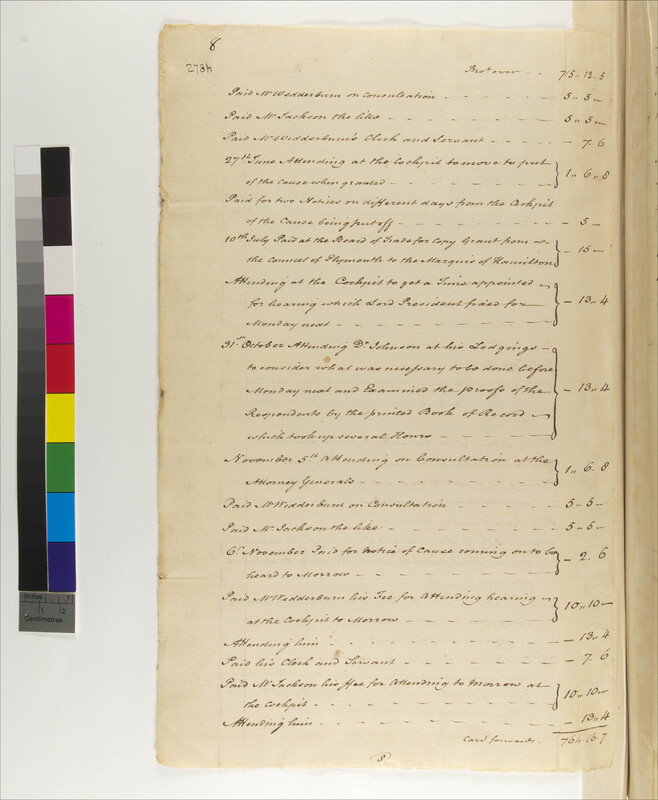 8
2734
Bro.t over - - 715 „ 12 . 5
Paid Mr Wedderburn on Consultation - - - - - 5 „ 5 –
Paid Mr Jackson the like - - - - - - - 5 „ 5 –
Paid Mr Wedderburn's Clerk and Servant - - - - - – 7 . 6
27th June Attending at the Cockpit to move to put
off the Cause when granted - - - - - - - 1 „ 6 „ 8
Paid for two Notices on different days from the Cockpit
of the Cause being put off - - - - - - – 5 –
10th July Paid at the Board of Trade for Copy Grant from
the Council of Plymouth to the Marquis of Hamilton – 15 –
Attending at the Cockpit to get a Time appointed
for hearing which Lord President fixed for – 13 „ 4
Monday next - - - - - - -
31st October Attending Dr Johnson at his Lodgings
to consider what was necessary to be done before
Monday next and Examined the proofs of the – 13 „ 4
Respondents by the printed Book of Record
which took up several Hours - - - - -
November 5th Attending on Consultation at the
Attorney Generals - - - - - - - 1 „ 6 . 8
Paid Mr Wedderburn on Consultation - - - - 5 „ 5 –
Paid Mr Jackson the like - - - - - - - 5 „ 5 –
6th November Paid for Notice of Cause coming on to be
heard to Morrow - - - - - - - – 2 . 6
Paid Mr Wedderburn his Fee for Attending hearing
at the Cockpit to Morrow - - - - - 10 „ 10 –
Attending him - - - - - - - – 13 „ 4
Paid his Clerk and Servant - - - - - - – 7 . 6
Paid Mr Jackson his ffee for Attending to Morrow at
the Cockpit - - - - - - - 10 „ 10 –
Attending him - - - - - - - – 13 „ 4
Card forwards - 764 . 16 . 7
8
Inches
1 2
Centimetres